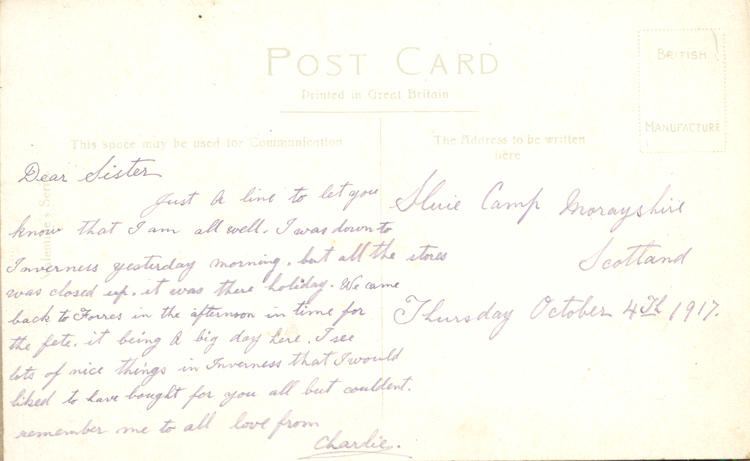 POST CARD
Printed in Great Britain
BRITISH
MANUFACTURE
This space may be used for Communication
The Address to be written
here
Dear Sister
Just A line to let you
know that I am all well. I was down to
Inverness yesterday morning. but all the stores
was closed up. it was there holiday. We came
back to Forres in the afternoon in time for
the fete. it being A big day here. I see
lots of nice things in Inverness that I would
liked to have bought for you all but couldent.
remember me to all love from
Charlie.
Sluie Camp Morayshire
Scotland
Thursday October 4th 1917.